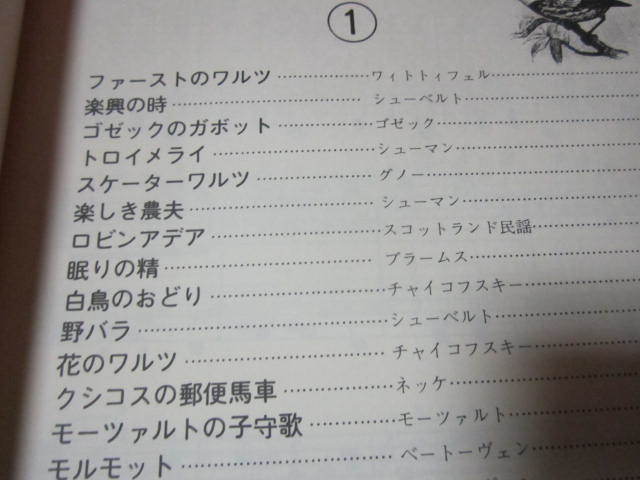 ①
ファーストのワルツ……………ワィトティフェル
楽興の時……………シューベルト
ゴゼックのガボット……………ゴゼック
トロイメライ……………シューマン
スケーターワルツ……………グノー
楽しき農夫……………シューマン
ロビンアデア……………スコットランド民謡
眠りの精……………ブラームス
白鳥のおどり……………チャイコフスキー
野バラ……………シューベルト
花のワルツ……………チャイコフスキー
クシコスの郵便馬車……………ネッケ
モーツァルトの子守歌……………モーツァルト
モルモット……………ベートーヴェン